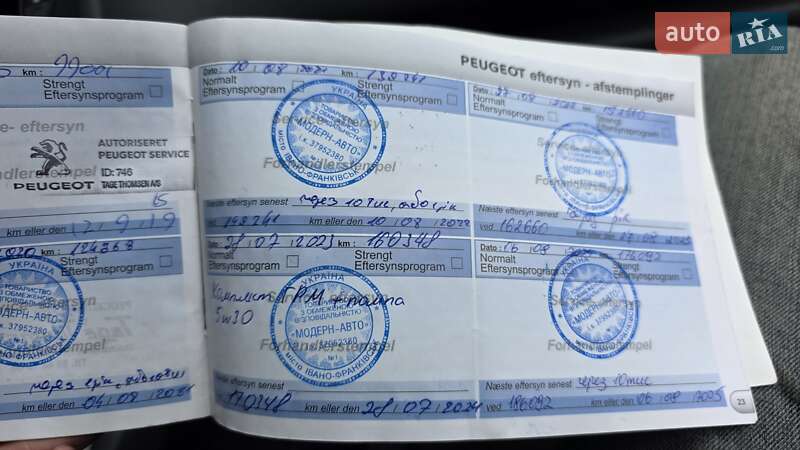 auto RIA .com
PEUGEOT eftersyn - afstemplinger
km : 99001
Strengt
Eftersynsprogram
AUTORISERET
PEUGEOT SERVICE
ID: 746
PEUGEOT TAGE THOMSEN A/S
km eller den 12 9 19
km : 124868
Strengt
Eftersynsprogram
УКРАЇНА
ТОВАРИСТВО
З ОБМЕЖЕНОЮ
ВІДПОВІДАЛЬНІСТЮ
«МОДЕРН-АВТО»
37952380
Forhandlerstempel
через рік, або
km eller den 04 08 2021
Dato : 10 08 2021 km : 138241
Normalt
Eftersynsprogram
Strengt
Eftersynsprogram
УКРАЇНА
ТОВАРИСТВО
З ОБМЕЖЕНОЮ
ВІДПОВІДАЛЬНІСТЮ
«МОДЕРН-АВТО»
і.к. 37952380
місто ІВАНО-ФРАНКІВСЬК
Forhandlerstempel
Næste eftersyn senest через 10 тис, або рік
ved 148241 km eller den 10 08 2022
Dato : 27 08 2022 km : 152660
Normalt
Eftersynsprogram
Strengt
Eftersynsprogram
«МОДЕРН-АВТО»
Næste eftersyn senest
ved 162660 km eller den
Dato : 28 07 2023 km : 160348
Normalt
Eftersynsprogram
Strengt
Eftersynsprogram
Комплект ГРМ + помпа
5w30
УКРАЇНА
ТОВАРИСТВО
З ОБМЕЖЕНОЮ
ВІДПОВІДАЛЬНІСТЮ
«МОДЕРН-АВТО»
37952380
місто ІВАНО-ФРАНКІВСЬК
Forhandlerstempel
Næste eftersyn senest
ved 170348 km eller den 28 07 2024
Dato : 06 08 km : 176092
Normalt
Eftersynsprogram
Strengt
Eftersynsprogram
«МОДЕРН-АВТО»
Forhandlerstempel
Næste eftersyn senest через 10 тис
ved 186092 km eller den 06 08 2025
23